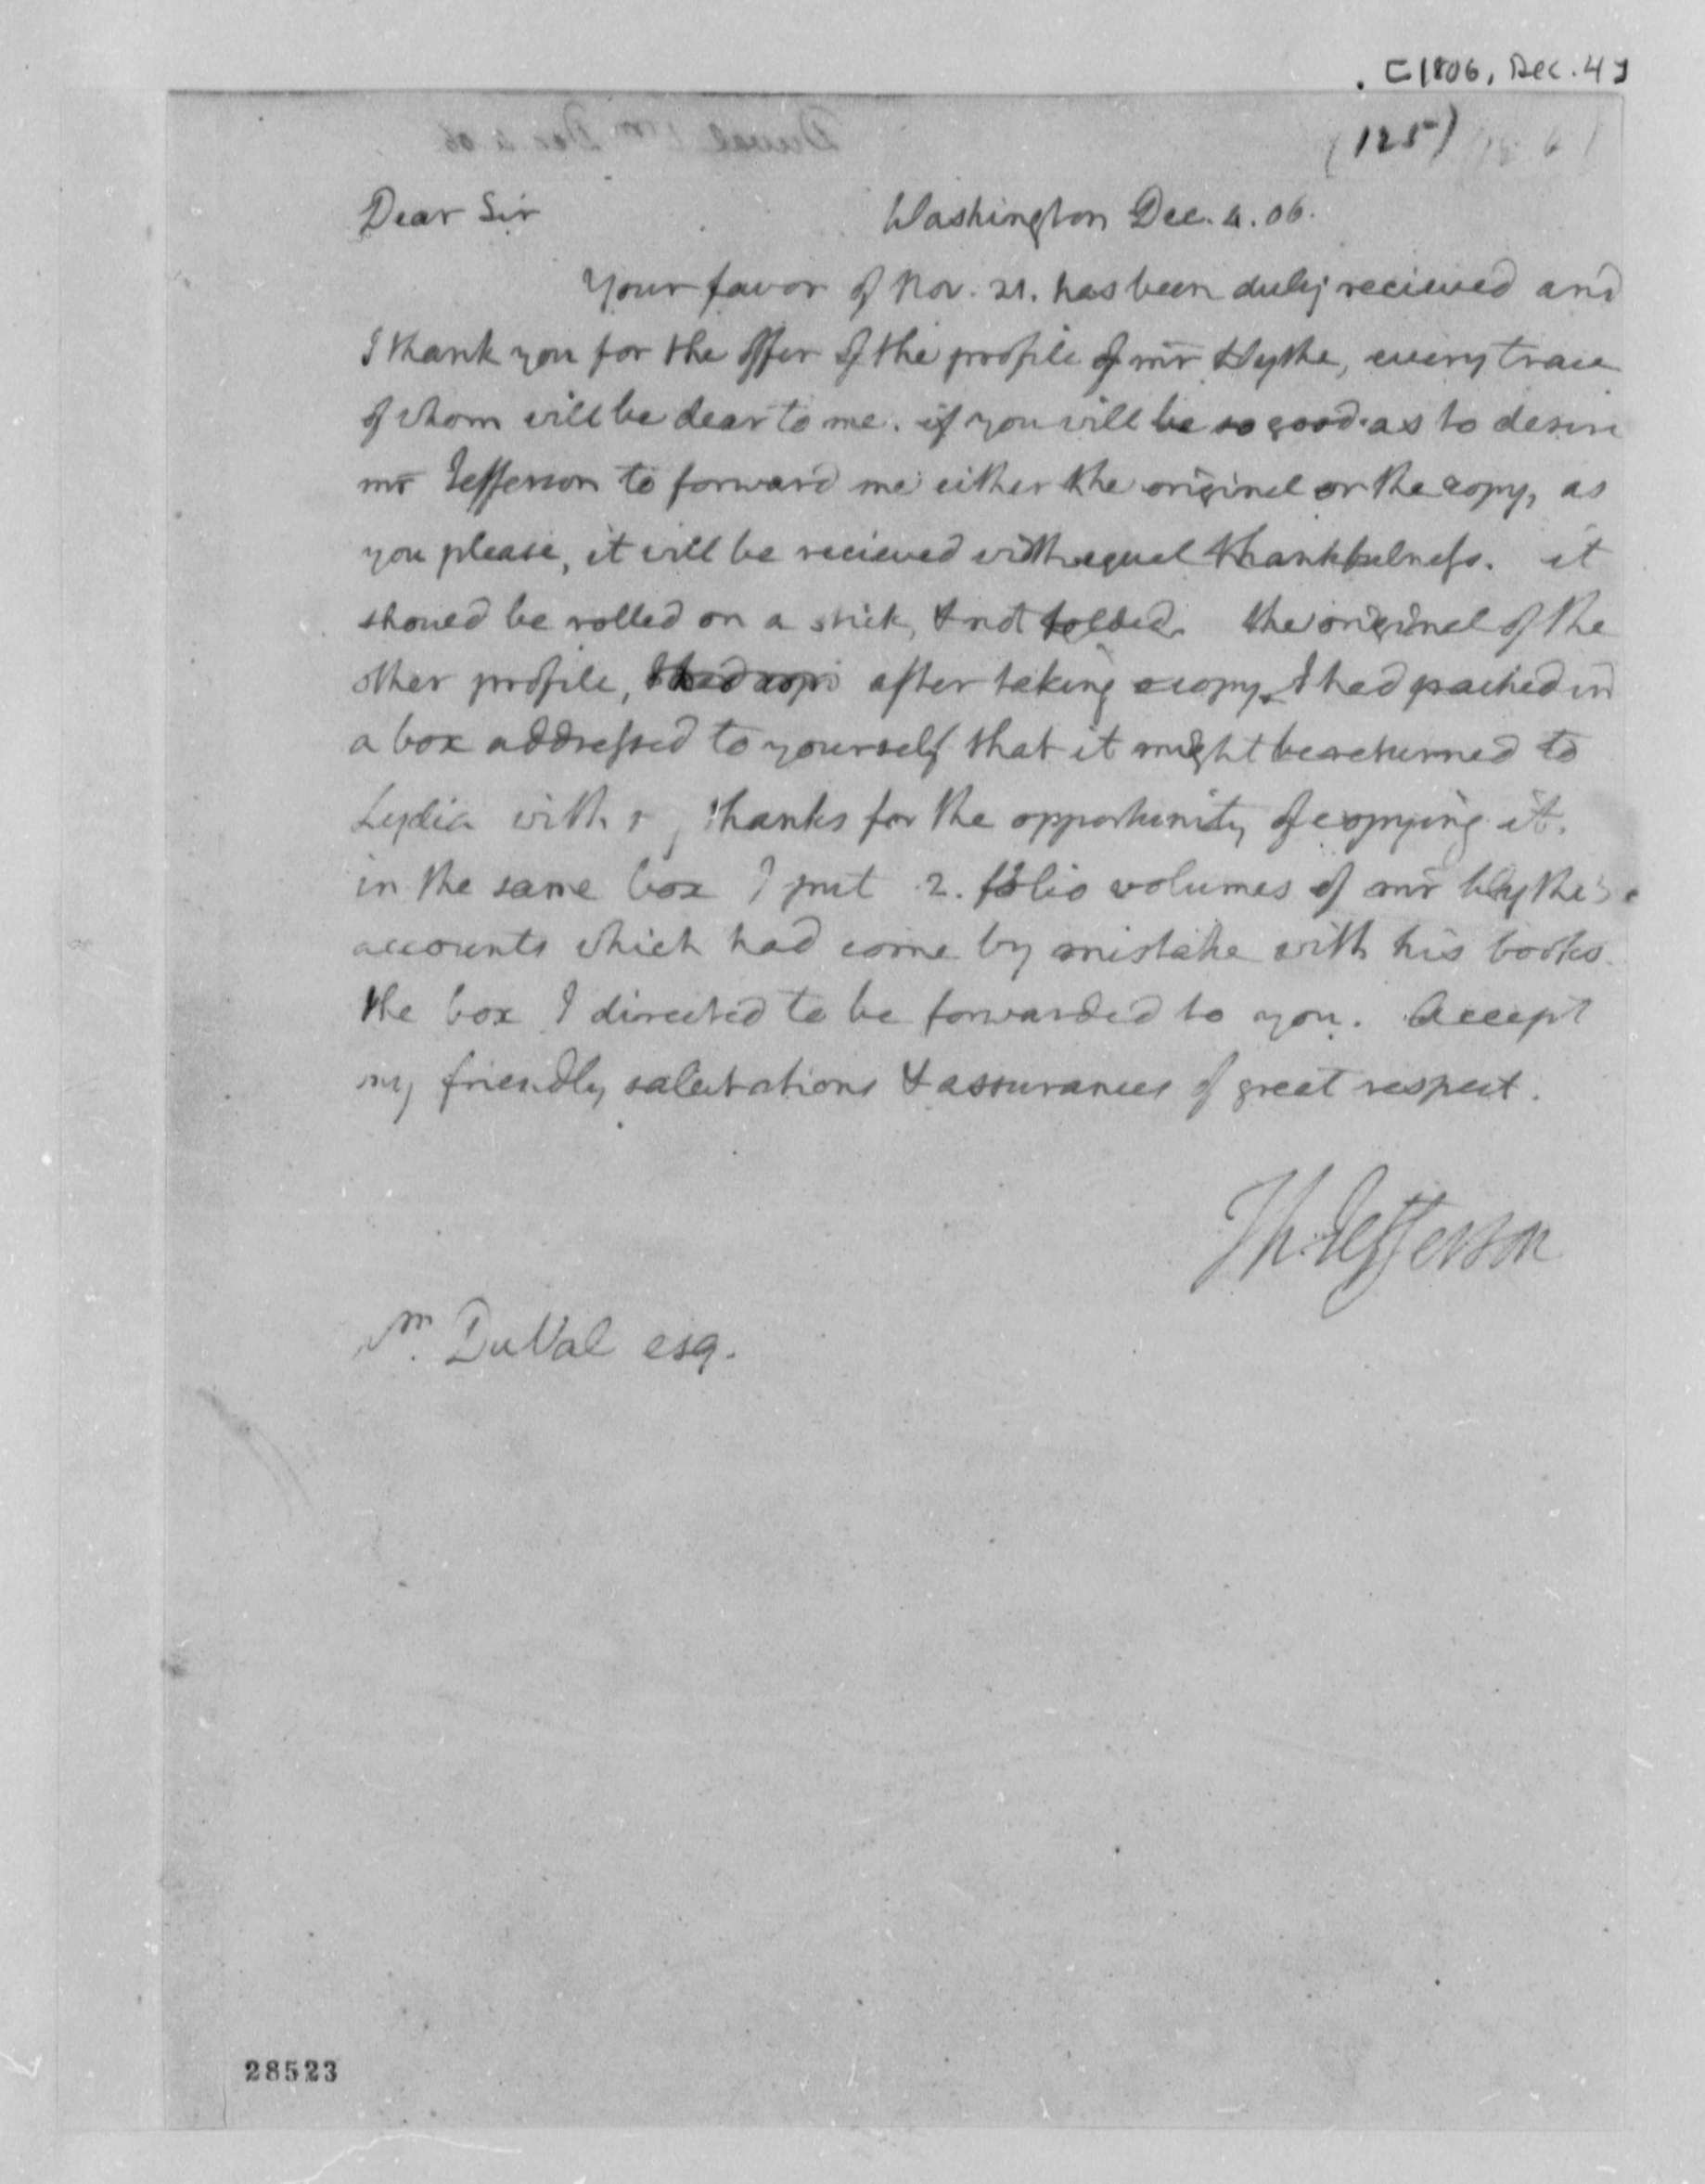 [1806, Dec. 4]
(125)
Dear Sir Washington Dec. 4. 06.
Your favor of Nov. 21. has been duly recieved and
I thank you for the offer of the profile of mr Wythe, every trace
of whom will be dear to me. if you will be so good as to desire
mr Jefferson to forward me either the original or the copy, as
you please, it will be recieved with equal thankfulness. it
should be rolled on a stick, & not folded. the original of the
other profile, I had copi after taking a copy, I had packed in
a box addressed to yourself that it might be returned to
Lydia with my thanks for the opportunity of copying it.
in the same box I put 2. folio volumes of mr Wythe's
accounts which had come by mistake with his books.
the box I directed to be forwarded to you. Accept
my friendly salutations & assurances of great respect.
Th: Jefferson
Wm. DuVal esq.
28523